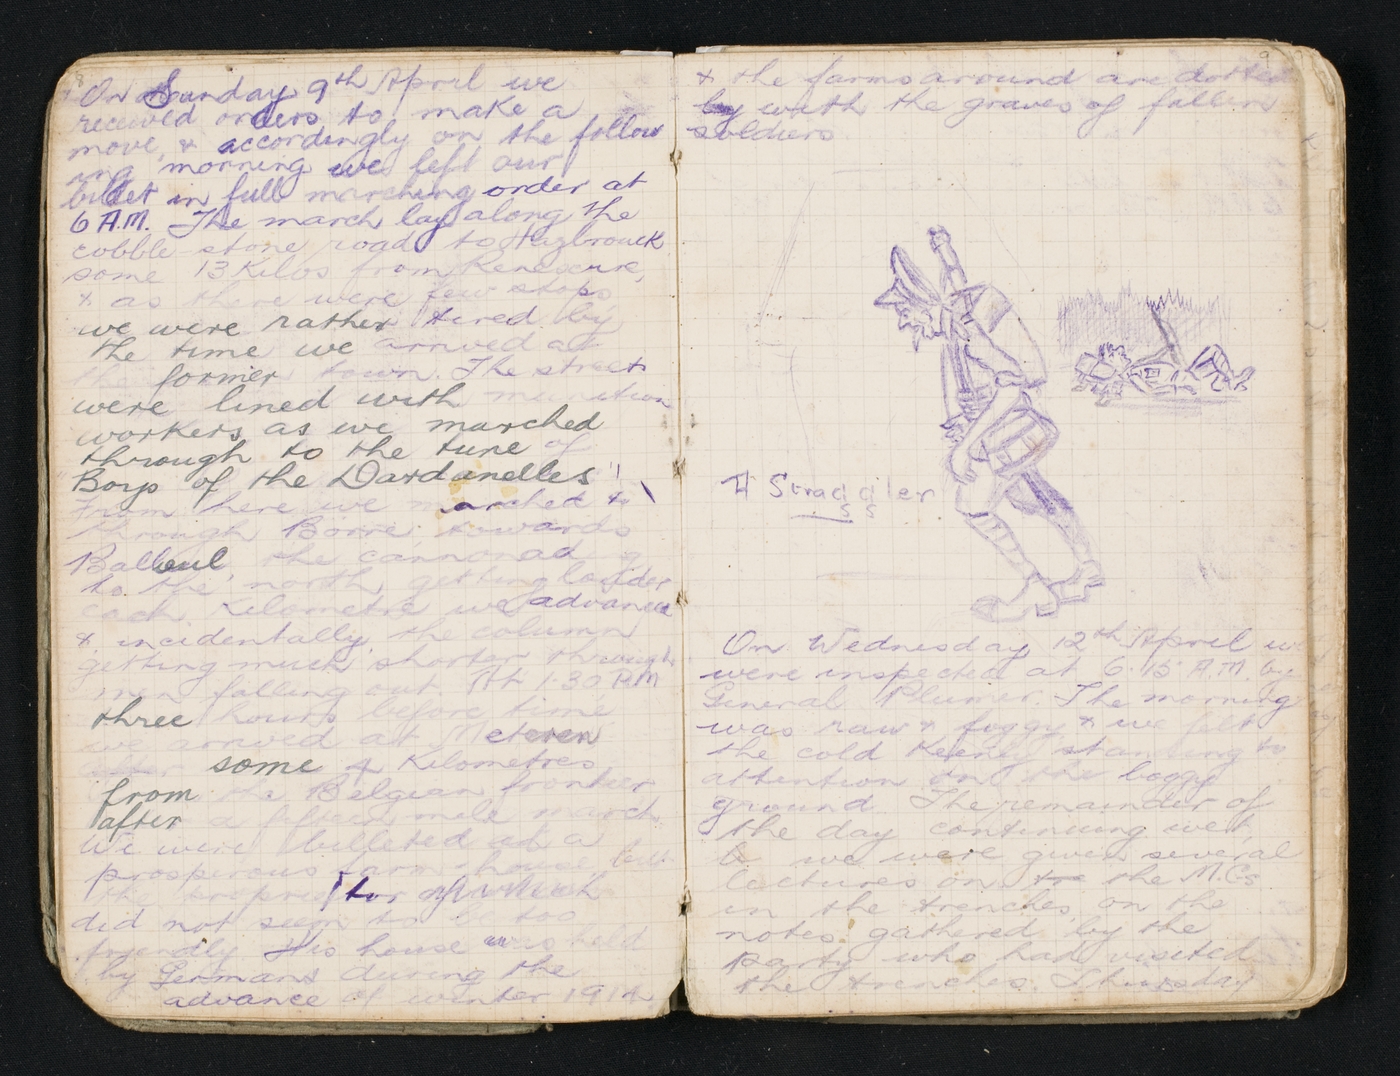 8
On Sunday 9th April we
received orders to make a
move, & accordingly on the follow
ing morning we left our
billet in full marching order at
6 A.M. The march lay along the
cobble stone road to Hazbrouck
some 13 Kilos from Renescure,
& as there were few stops
we were rather tired by
the time we arrived at
the former town. The streets
were lined with munition
workers as we marched
through to the tune of
Boys of the Dardanelles"!
From here we marched
through Borre, towards
Balleul, the cannonading
to the north, getting louder
each Kilometre we advance
& incidentally the column
getting much shorter through
men falling out. At 1.30 P.M
three hours before time
we arrived at Meteren
after some 4 Kilometres
from the Belgian frontier
after a fifteen mile march
We were billeted at a
prosperous farm house but
the proprietor of which
did not seem to be too
friendly His house was held
by Germans during the
advance of winter 1914
9
& the farms around are dotted
by with the graves of fallen
soldiers
A Straggler
On Wednesday 12th April we
were inspected at 6.15 A.M. by
General Plumer. The morning
was raw & foggy & we felt
the cold keenly standing to
attention on the boggy
ground The remainder of
the day continuing wet,
we were given several
lectures on the the M.Gs
in the trenches, on the
notes gathered by the
party who had visited
the trenches. Thursday